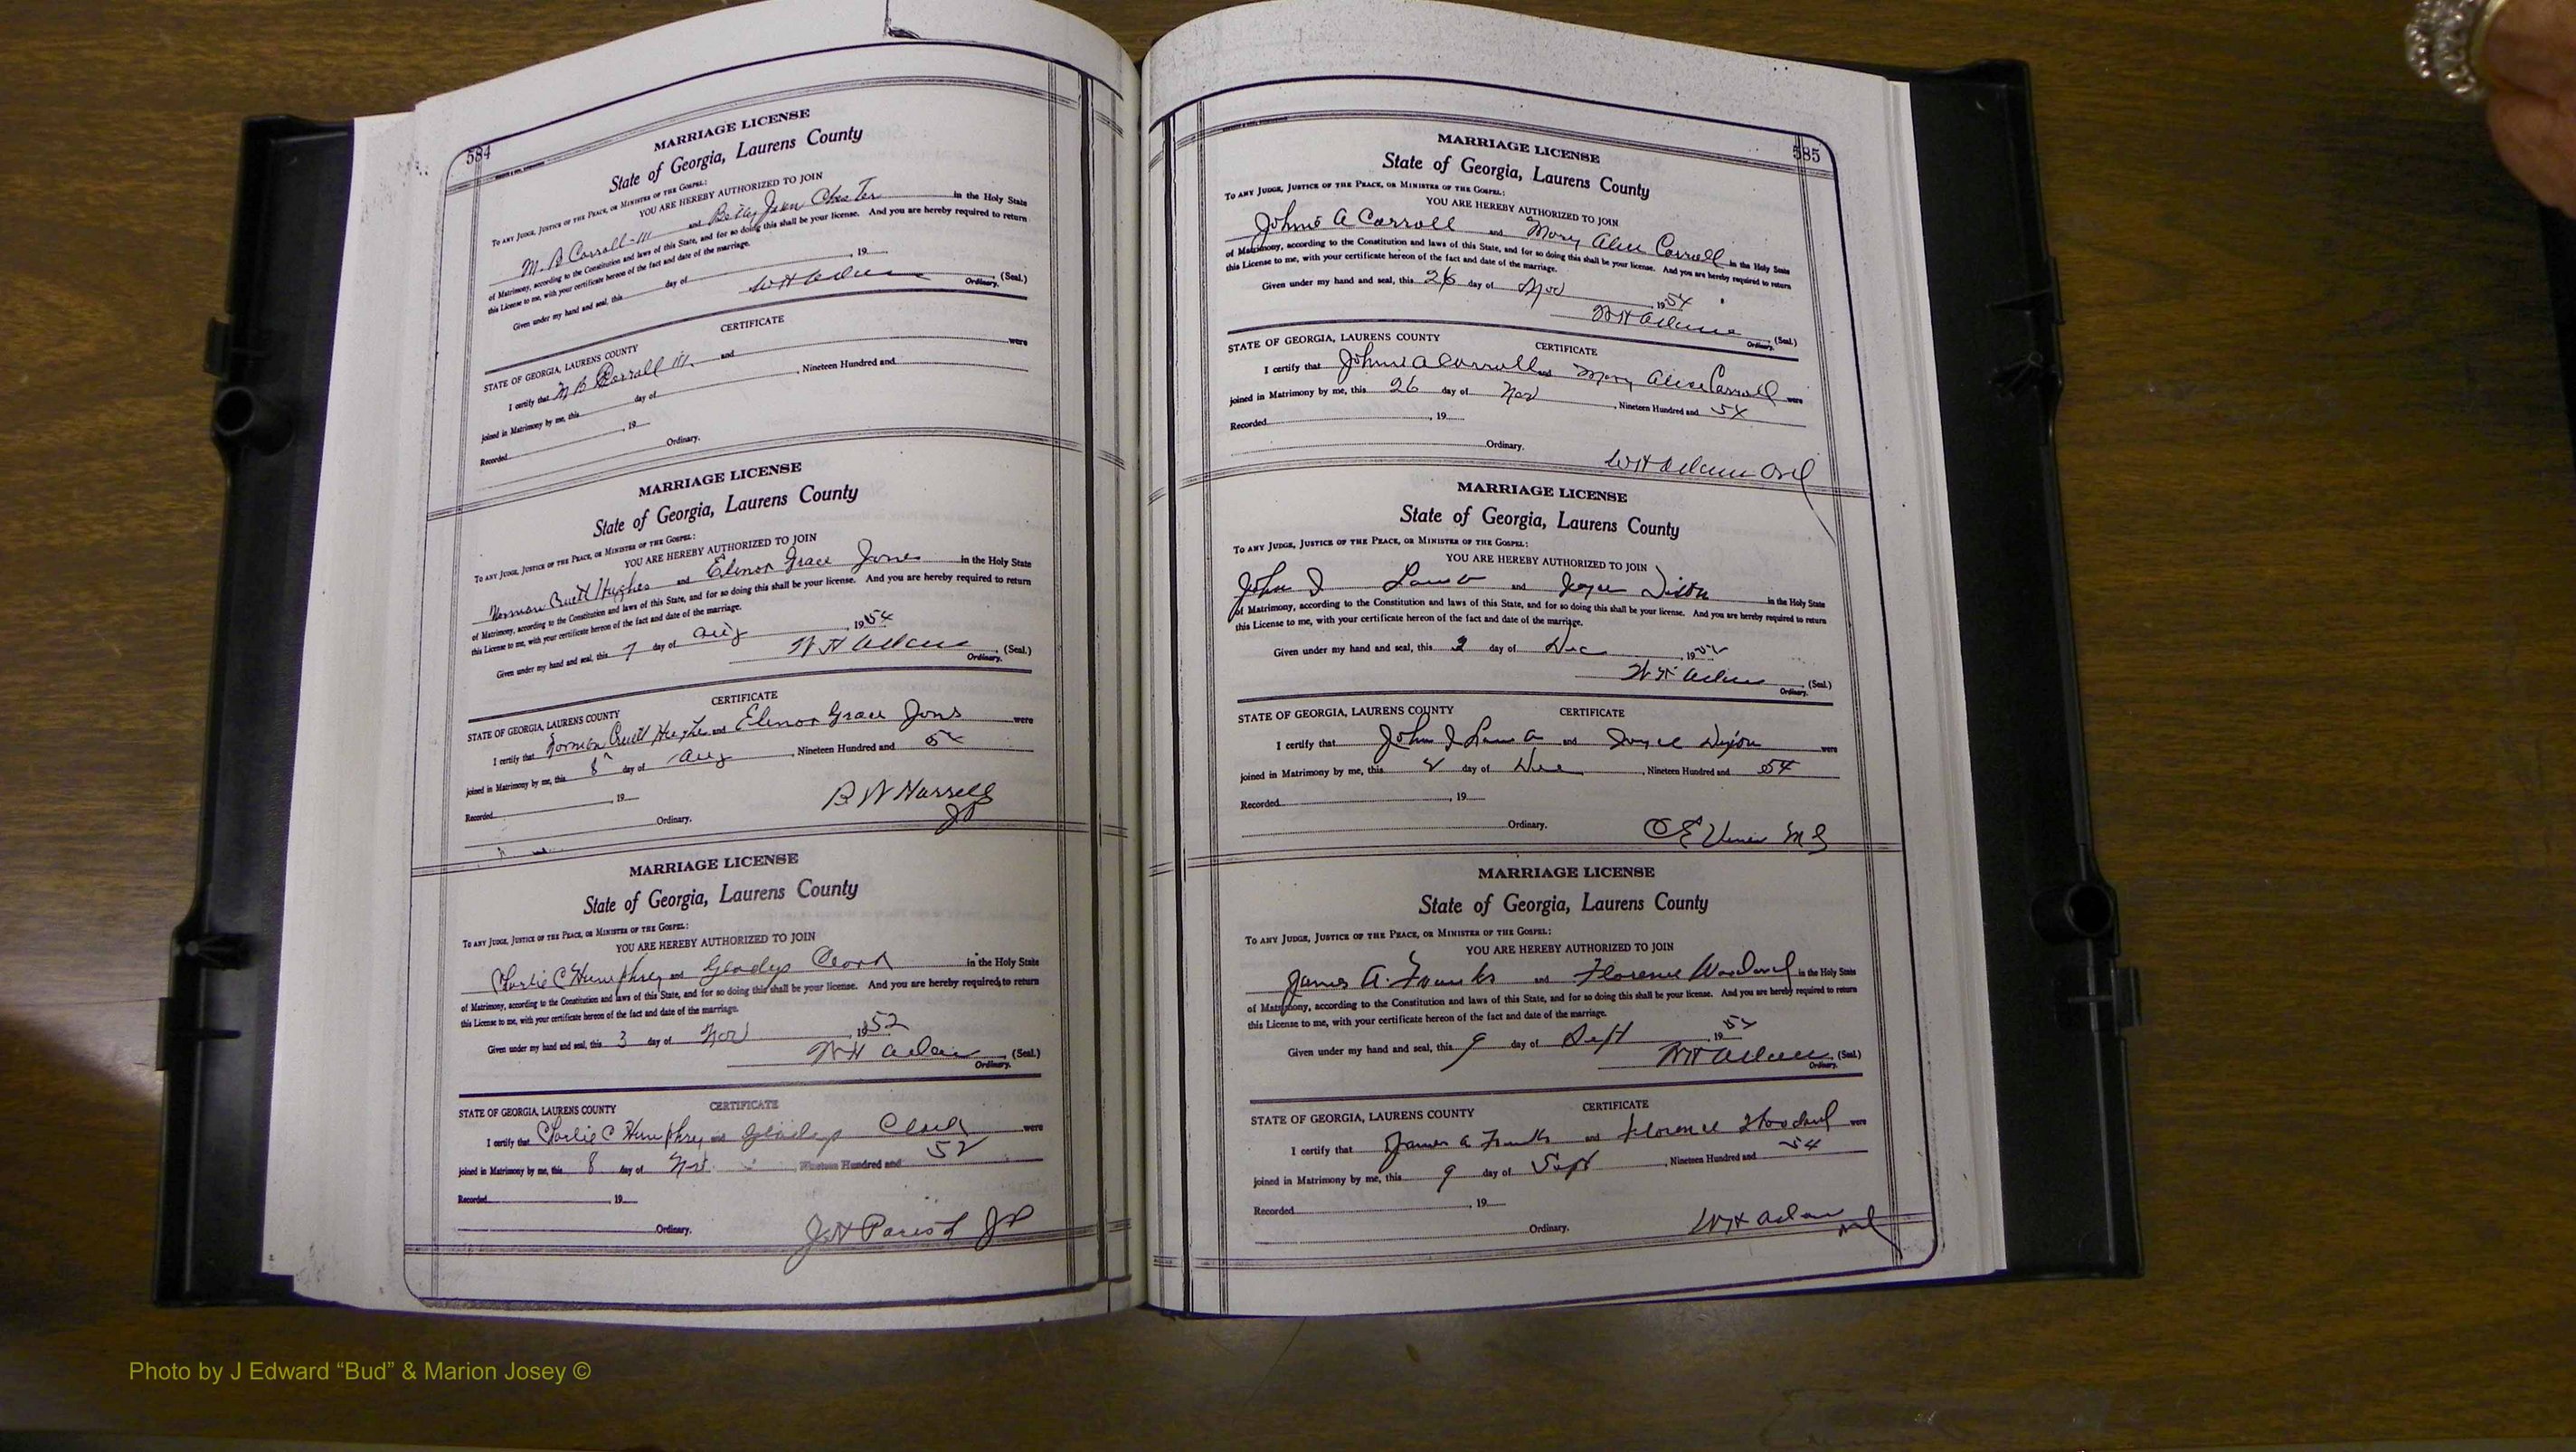 584
MARRIAGE LICENSE
State of Georgia, Laurens County
To any Judge, Justice of the Peace, or Minister of the Gospel:
YOU ARE HEREBY AUTHORIZED TO JOIN
M. B Carroll - III and Betty Jean Chester in the Holy State
of Matrimony, according to the Constitution and laws of this State, and for so doing this shall be your license. And you are hereby required to return
this License to me, with your certificate hereon of the fact and date of the marriage.
Given under my hand and seal, this day of , 19
W H Adams (Seal.)
Ordinary.
CERTIFICATE
STATE OF GEORGIA, LAURENS COUNTY
I certify that M B Carroll III. and were
joined in Matrimony by me, this day of , Nineteen Hundred and
Recorded , 19
Ordinary.
MARRIAGE LICENSE
State of Georgia, Laurens County
To any Judge, Justice of the Peace, or Minister of the Gospel:
YOU ARE HEREBY AUTHORIZED TO JOIN
Norman Hughes and Elenor Grace Jones in the Holy State
of Matrimony, according to the Constitution and laws of this State, and for so doing this shall be your license. And you are hereby required to return
this License to me, with your certificate hereon of the fact and date of the marriage.
Given under my hand and seal, this 7 day of Aug , 1954
W H Adams (Seal.)
Ordinary.
CERTIFICATE
STATE OF GEORGIA, LAURENS COUNTY
I certify that Norman Hughes and Elenor Grace Jons were
joined in Matrimony by me, this 8 day of Aug , Nineteen Hundred and 54
Recorded , 19
Ordinary.
B W Harrell
JP
MARRIAGE LICENSE
State of Georgia, Laurens County
To any Judge, Justice of the Peace, or Minister of the Gospel:
YOU ARE HEREBY AUTHORIZED TO JOIN
Charlie C Humphrey and Gladys Clark in the Holy State
of Matrimony, according to the Constitution and laws of this State, and for so doing this shall be your license. And you are hereby required to return
this License to me, with your certificate hereon of the fact and date of the marriage.
Given under my hand and seal, this 3 day of Nov , 1952
W H Adams (Seal.)
Ordinary.
CERTIFICATE
STATE OF GEORGIA, LAURENS COUNTY
I certify that Charlie C Humphrey and Gladys Clark were
joined in Matrimony by me, this 8 day of Nov , Nineteen Hundred and 52
Recorded , 19
Ordinary.
J H Parish JP
585
MARRIAGE LICENSE
State of Georgia, Laurens County
To any Judge, Justice of the Peace, or Minister of the Gospel:
YOU ARE HEREBY AUTHORIZED TO JOIN
Johnie A Carroll and Mary Alice Carroll in the Holy State
of Matrimony, according to the Constitution and laws of this State, and for so doing this shall be your license. And you are hereby required to return
this License to me, with your certificate hereon of the fact and date of the marriage.
Given under my hand and seal, this 26 day of Nov , 1954
W H Adams (Seal.)
Ordinary.
STATE OF GEORGIA, LAURENS COUNTY CERTIFICATE
I certify that Johnie A Carroll and Mary Alice Carroll were
joined in Matrimony by me, this 26 day of Nov , Nineteen Hundred and 54
Recorded , 19
Ordinary.
W H Adams Ord
MARRIAGE LICENSE
State of Georgia, Laurens County
To any Judge, Justice of the Peace, or Minister of the Gospel:
YOU ARE HEREBY AUTHORIZED TO JOIN
John I Lamb and Joyce Dixon in the Holy State
of Matrimony, according to the Constitution and laws of this State, and for so doing this shall be your license. And you are hereby required to return
this License to me, with your certificate hereon of the fact and date of the marriage.
Given under my hand and seal, this 2 day of Dec , 1954
W H Adams (Seal.)
Ordinary.
STATE OF GEORGIA, LAURENS COUNTY CERTIFICATE
I certify that John I Lamb and Joyce Dixon were
joined in Matrimony by me, this 2 day of Dec , Nineteen Hundred and 54
Recorded , 19
Ordinary.
O E MG
MARRIAGE LICENSE
State of Georgia, Laurens County
To any Judge, Justice of the Peace, or Minister of the Gospel:
YOU ARE HEREBY AUTHORIZED TO JOIN
James A. and Florence Woodard in the Holy State
of Matrimony, according to the Constitution and laws of this State, and for so doing this shall be your license. And you are hereby required to return
this License to me, with your certificate hereon of the fact and date of the marriage.
Given under my hand and seal, this 9 day of Sept , 1954
W H Adams (Seal.)
Ordinary.
STATE OF GEORGIA, LAURENS COUNTY CERTIFICATE
I certify that James A and Florence Woodard were
joined in Matrimony by me, this 9 day of Sept , Nineteen Hundred and 54
Recorded , 19
Ordinary.
W H Adams Ord
Photo by J Edward “Bud” & Marion Josey ©